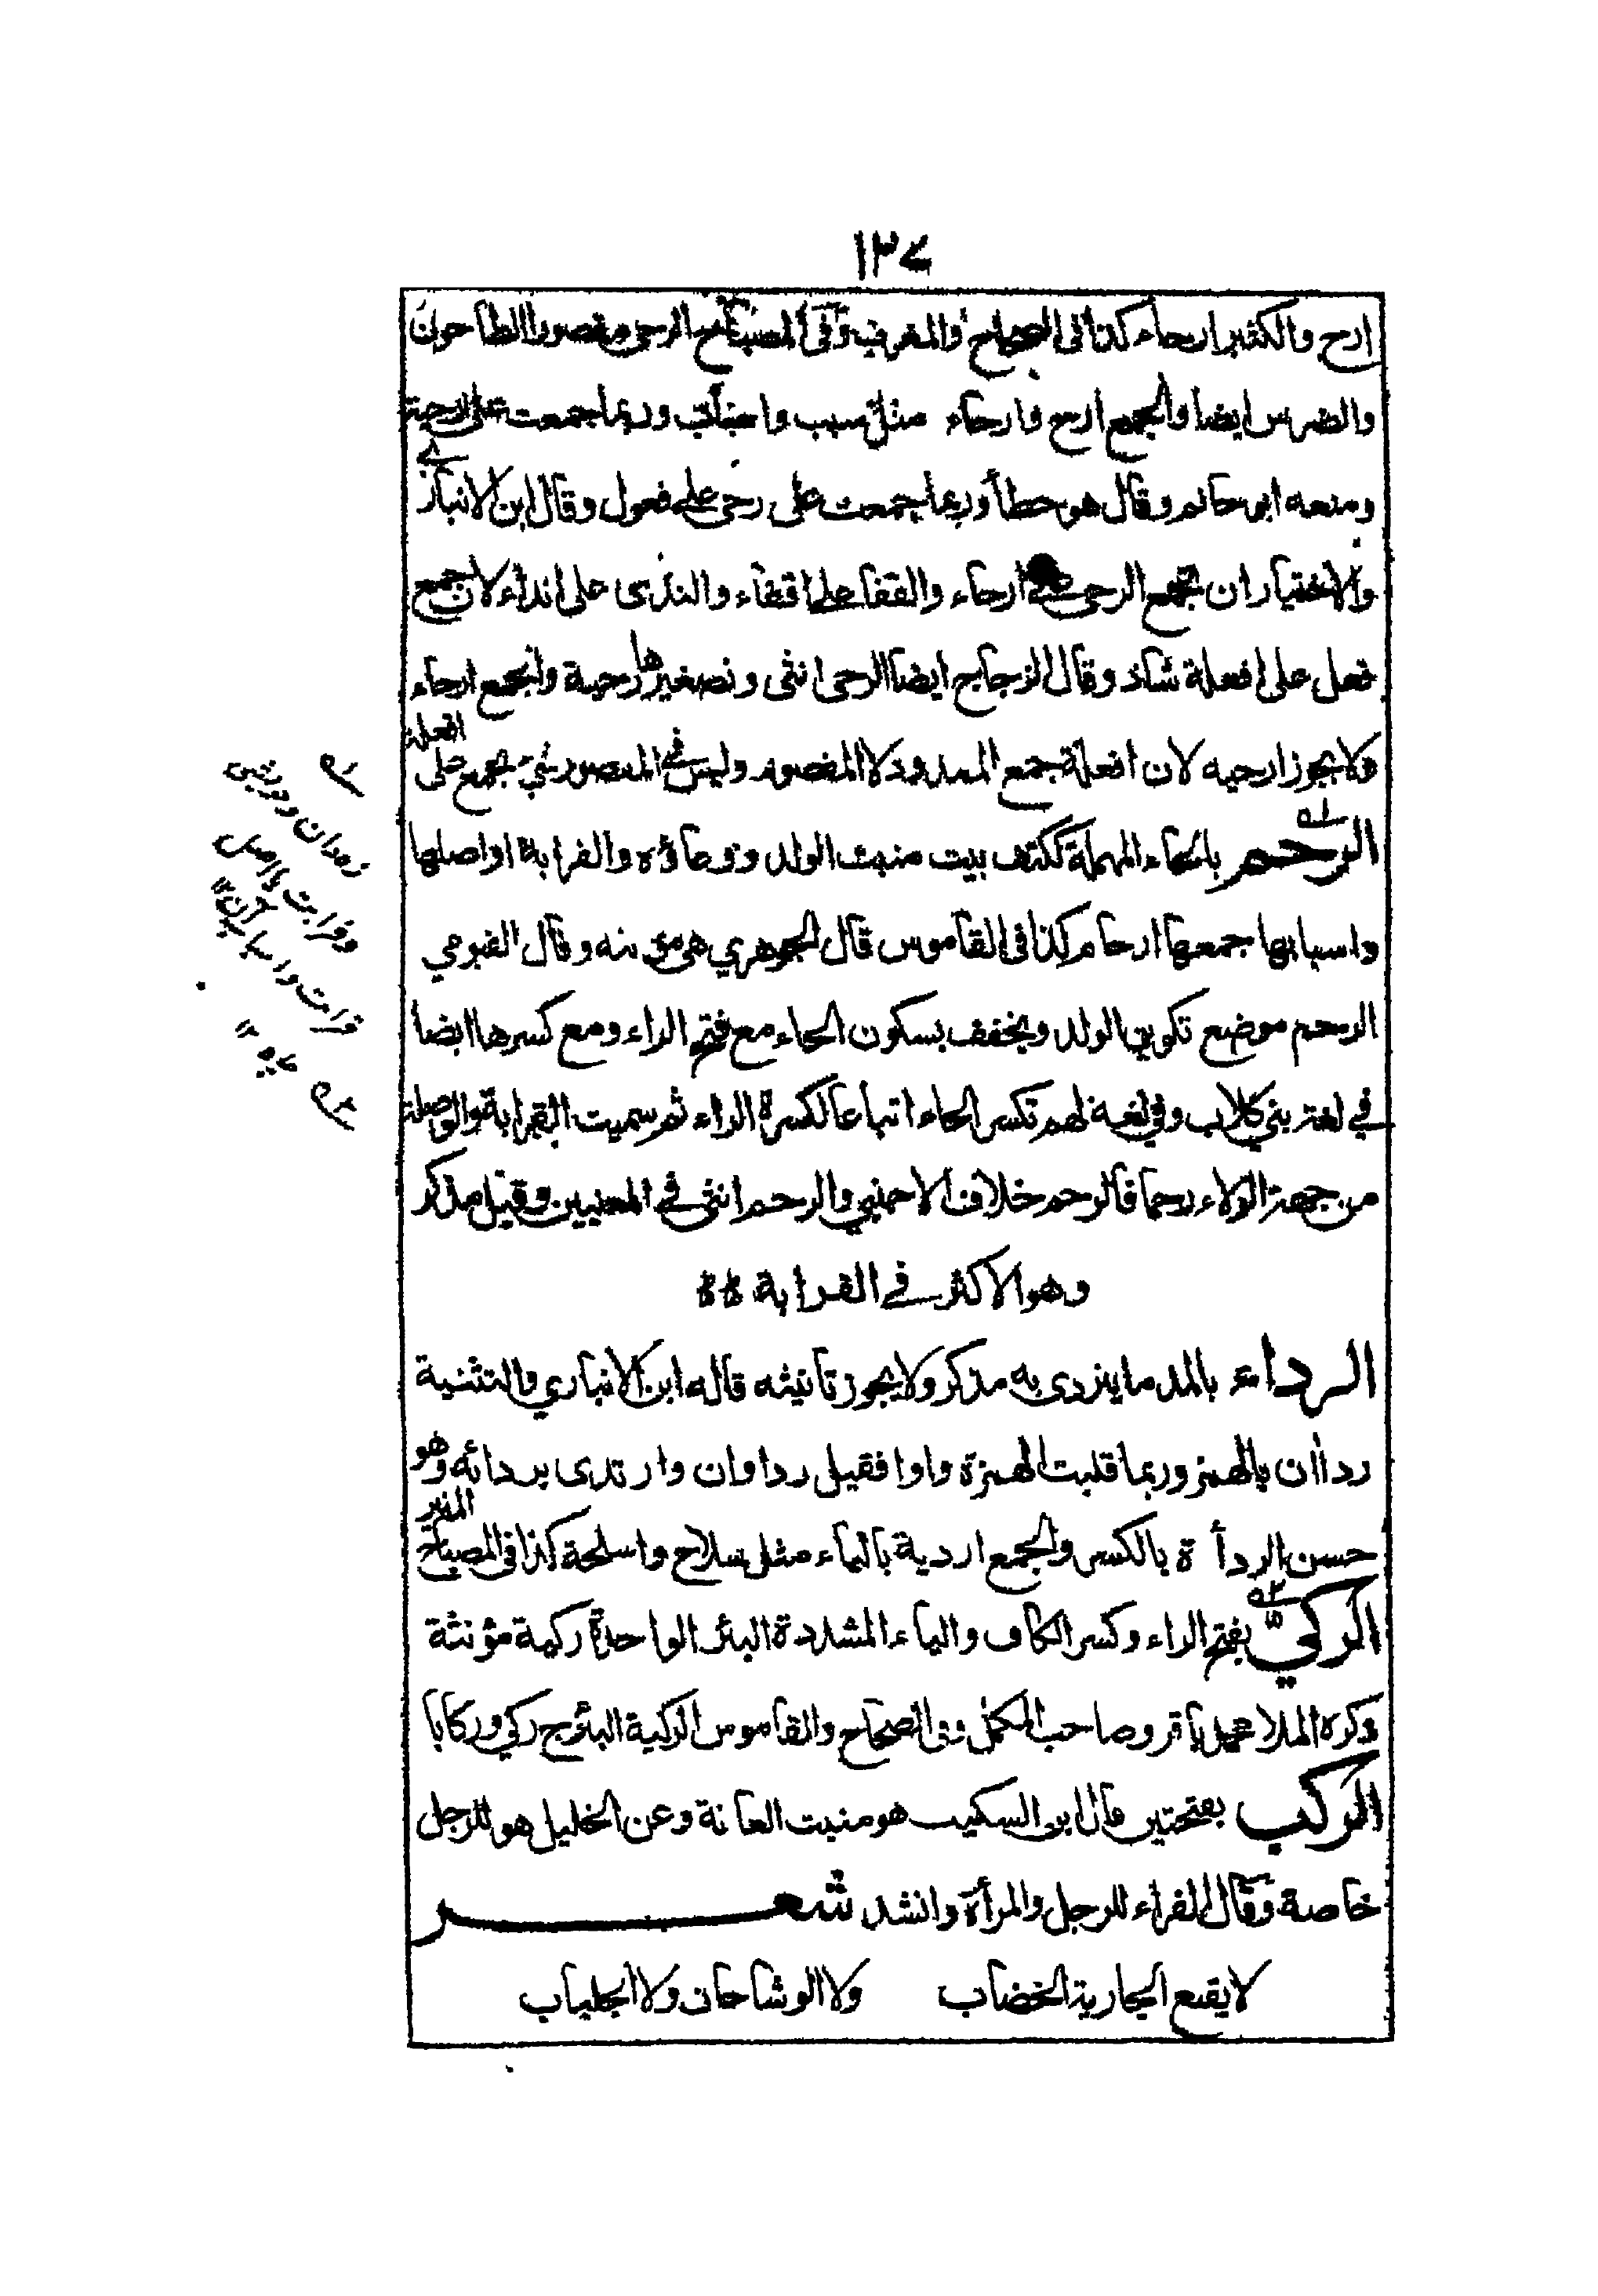 ١٣٧
ارح والكثير ارحاء كذا فى الصحاح والمغرب وفى المصباح الرحى مقصورا الطاحون
والضرس ايضا والجمع ارح وارحاء مثل سبب واسباب وربما جمعت على ارحية
ومنعه ابو حاتم وقال هو خطأ وربما جمعت على رحى على فعول وقال ابن الانباري
والاختيار ان تجمع الرحى على ارحاء والقفا على اقفاء والندى على انداء لان جمع
فعل على افعلة شاذ وقال الزجاج ايضا الرحى انثى وتصغيرها رحية والجمع ارحاء
ولا يجوز ارحيه لان افعلة جمع الممدود لا المقصور وليس فى المقصور شئ يجمع على افعلة
الرحم بالحاء المهملة ككتف بيت منبت الولد ووعاؤه والقرابة او اصلها
واسبابها جمعها ارحام كذا فى القاموس قال الجوهري هى مؤنثه وقال الفيومي
الرحم موضع تكوين الولد ويخفف بسكون الحاء مع فتح الراء ومع كسرها ايضا
في لغة بني كلاب وفي لغة لهم تكسر الحاء اتباعا لكسرة الراء ثم سميت القرابة والوصلة
من جهة الولاء رحما فالرحم خلاف الاجنبي والرحم انثى فى المعنيين وقيل مذكر
وهو الاكثر فى القرابة
الرداء بالمد ما يرتدى به مذكر ولا يجوز تانيثه قاله ابن الانباري والتثنية
رداان بالهمز وربما قلبت الهمزة واوا فقيل رداوان وارتدى بردائه وهو
حسن الردأة بالكسر والجمع اردية بالياء مثل سلاح واسلحة كذا فى المصباح المنير
الركي بفتح الراء وكسر الكاف والياء المشددة البئر الواحدة ركية مؤنثة
ذكره الملا محمد باقر وصاحب المكمل وفى الصحاح والقاموس الركية البئر ج ركي وركايا
الركب بفتحتين قال ابن السكيت هو منبت العانة وعن الخليل هو للرجل
خاصة وقال الفراء للرجل والمرأة وانشد شعر
لا يقنع الجارية الخضاب ولا الوشاحان ولا الجلباب
زهدان
وقرابت يا اصل
قرابت واسباب آن
چاه